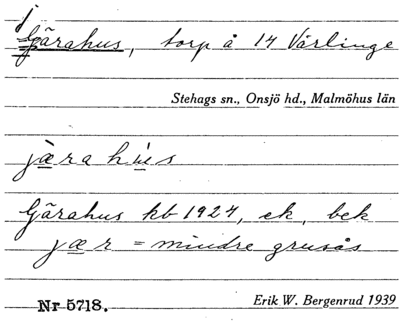 j
Gärahus, torp å 14 Värlinge
Stehags sn., Onsjö hd., Malmöhus län
jæ̀ra hùs
Gärahus kb 1924, ek, bek
jær = mindre grusås
Nr 5718.
Erik W. Bergenrud 1939